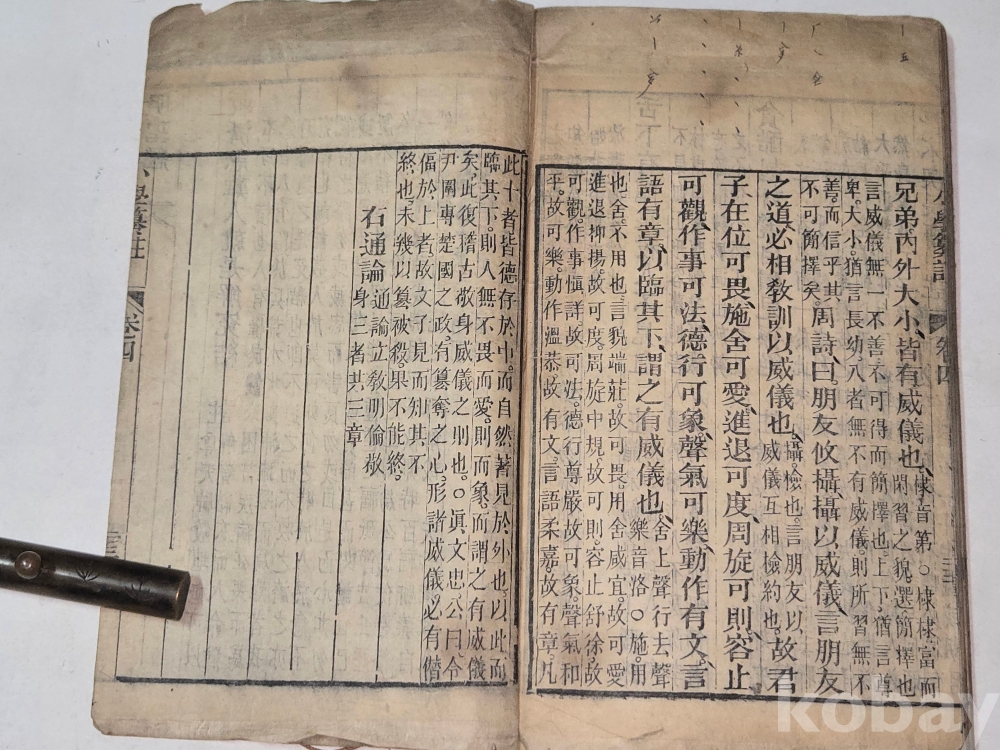 小學纂註 卷四
兄弟內外大小、皆有威儀也、棣音第。○棣棣富而
閑習之貌選簡擇也
言威儀無一不善。不可得而簡擇也上下。猶言尊
卑。大小。猶言長幼。八者無不有威儀。則所習無不
善。而信乎其
不可簡擇矣。周詩曰、朋友攸攝、攝以威儀、言朋友
之道、必相敎訓以威儀也、攝。檢也。言朋友以
威儀互相檢約也。故君
子在位可畏、施舍可愛、進退可度、周旋可則、容止
可觀、作事可法、德行可象、聲氣可樂、動作有文、言
語有章、以臨其下、謂之有威儀也、舍上聲行去聲
樂音洛。○施。用
也。舍。不用也。言貌端莊。故可畏。用舍咸宜。故可愛
進退抑揚。故可度。周旋中規。故可則。容止舒徐。故
可觀。作事愼詳。故可法。德行尊嚴。故可象。聲氣和
平。故可樂。動作溫恭。故有文。言語柔嘉。故有章。凡
此十者皆德存於中。而自然著見於外也。以此而
臨其下。則人無不畏而愛。則而象。而謂之有威儀
矣。此復稽古敬身威儀之則也。○眞文忠公曰。令
尹圍專楚國之政。有簒奪之心。形諸威儀。必有僭
偪於上者。故文子見而知其不
終也。未幾以簒被殺。果不能終。
右通論通論立敎明倫敬
身三者。共三章
小學纂註 卷四
kobay